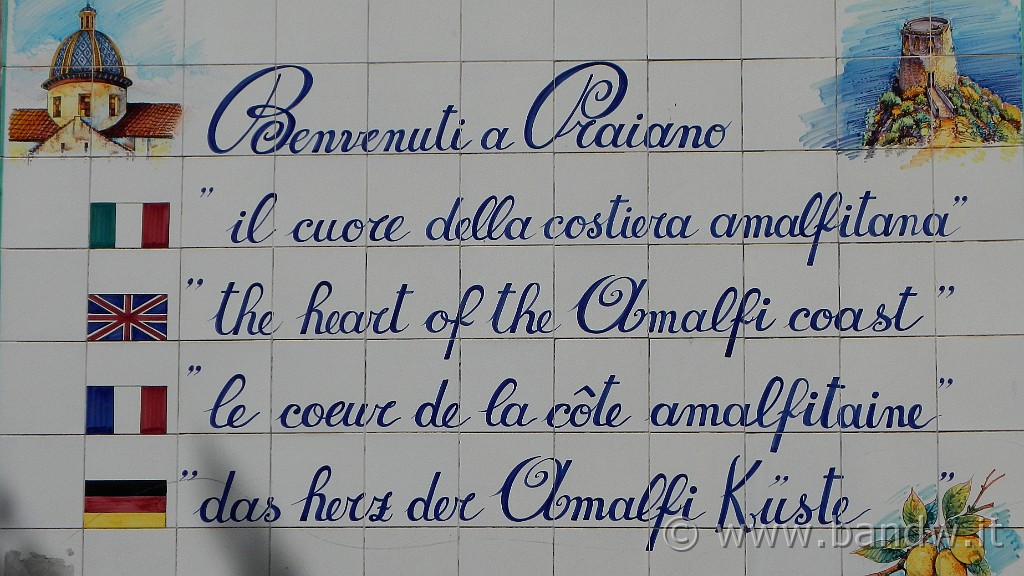 Benvenuti a Praiano
" il cuore della costiera amalfitana"
" the heart of the Amalfi coast "
" le coeur de la côte amalfitaine"
"das herz der Amalfi Küste "
© www.bandw.it